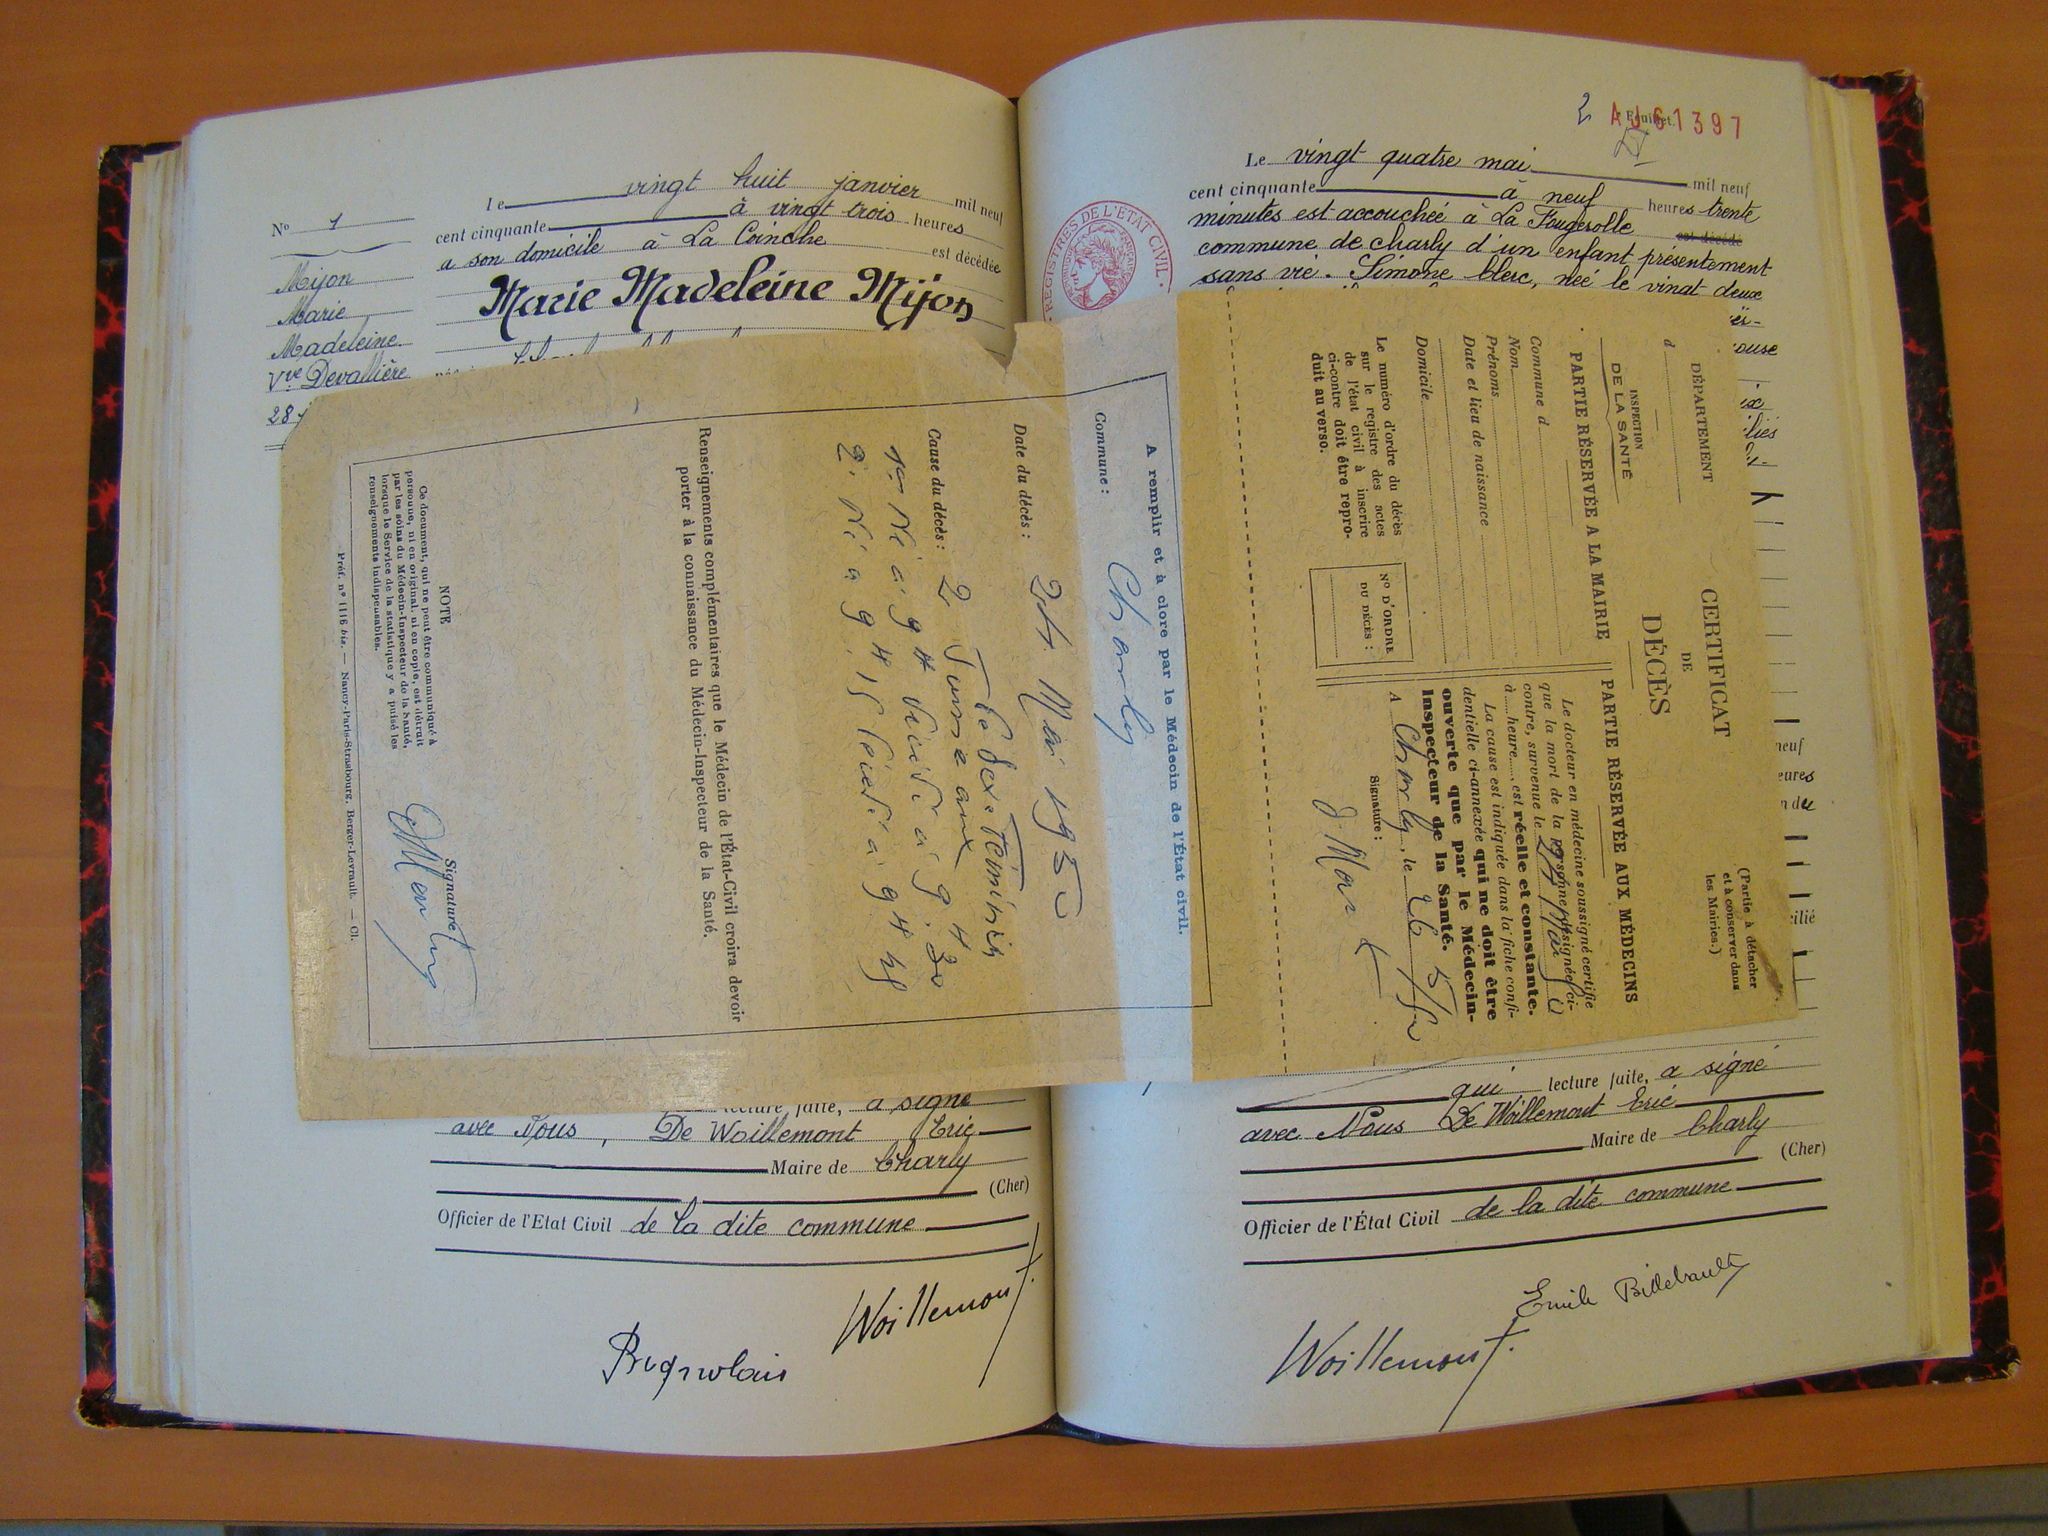 Nº 1
Mijon
Marie
Madeleine
Vve Devallière
28
Le vingt huit janvier mil neuf
cent cinquante à vingt trois heures
a son domicile à La Coinche est décédée
Marie Madeleine Mijon
lecture faite, a signé
avec Nous, De Woillemont Eric
Maire de Charly
(Cher)
Officier de l'Etat Civil de la dite commune
Woillemont
2 Feuillet.
AJ61397
REGISTRES DE L'ÉTAT CIVIL
Le vingt quatre mai mil neuf
cent cinquante à neuf heures trente
minutes est accouchée à La Fougerolle est décédé
commune de Charly d'un enfant présentement
sans vie. Simone Clerc, née le vingt deux
qui lecture faite, a signé
avec Nous De Woillemont Eric
Maire de Charly
(Cher)
Officier de l'État Civil de la dite commune
Emile Billebault
Woillemont
DÉPARTEMENT
d
INSPECTION
DE LA SANTÉ
CERTIFICAT
DE
DÉCÈS
(Partie à détacher
et à conserver dans
les Mairies.)
PARTIE RÉSERVÉE A LA MAIRIE
Commune d
Nom
Prénoms
Date et lieu de naissance
Domicile
Le numéro d'ordre du décès
sur le registre des actes
de l'état civil à inscrire
ci-contre doit être repro-
duit au verso.
Nº D'ORDRE
DU DÉCÈS :
PARTIE RÉSERVÉE AUX MÉDECINS
Le docteur en médecine soussigné certifie
que la mort de la personne désignée ci-
contre, survenue le 24 Mai
à heure, est réelle et constante.
La cause est indiquée dans la fiche confi-
dentielle ci-annexée qui ne doit être
ouverte que par le Médecin-
Inspecteur de la Santé.
A Charly, le 26
Signature :
A remplir et à clore par le Médecin de l'État civil.
Commune : Charly
Date du décès : 24 Mai 1950
Cause du décès : 2 Jumeaux
De Sexe Féminin
1er Né à 9 H
2. Né à 9 H 15
Renseignements complémentaires que le Médecin de l'État-Civil croira devoir
porter à la connaissance du Médecin-Inspecteur de la Santé.
NOTE
Ce document, qui ne peut être communiqué à
personne, ni en original, ni en copie, est détruit
par les soins du Médecin-Inspecteur de la Santé,
lorsque le Service de la statistique y a puisé les
renseignements indispensables.
Signature
Préf. nº 1116 bis. — Nancy-Paris-Strasbourg, Berger-Levrault. — Cl.